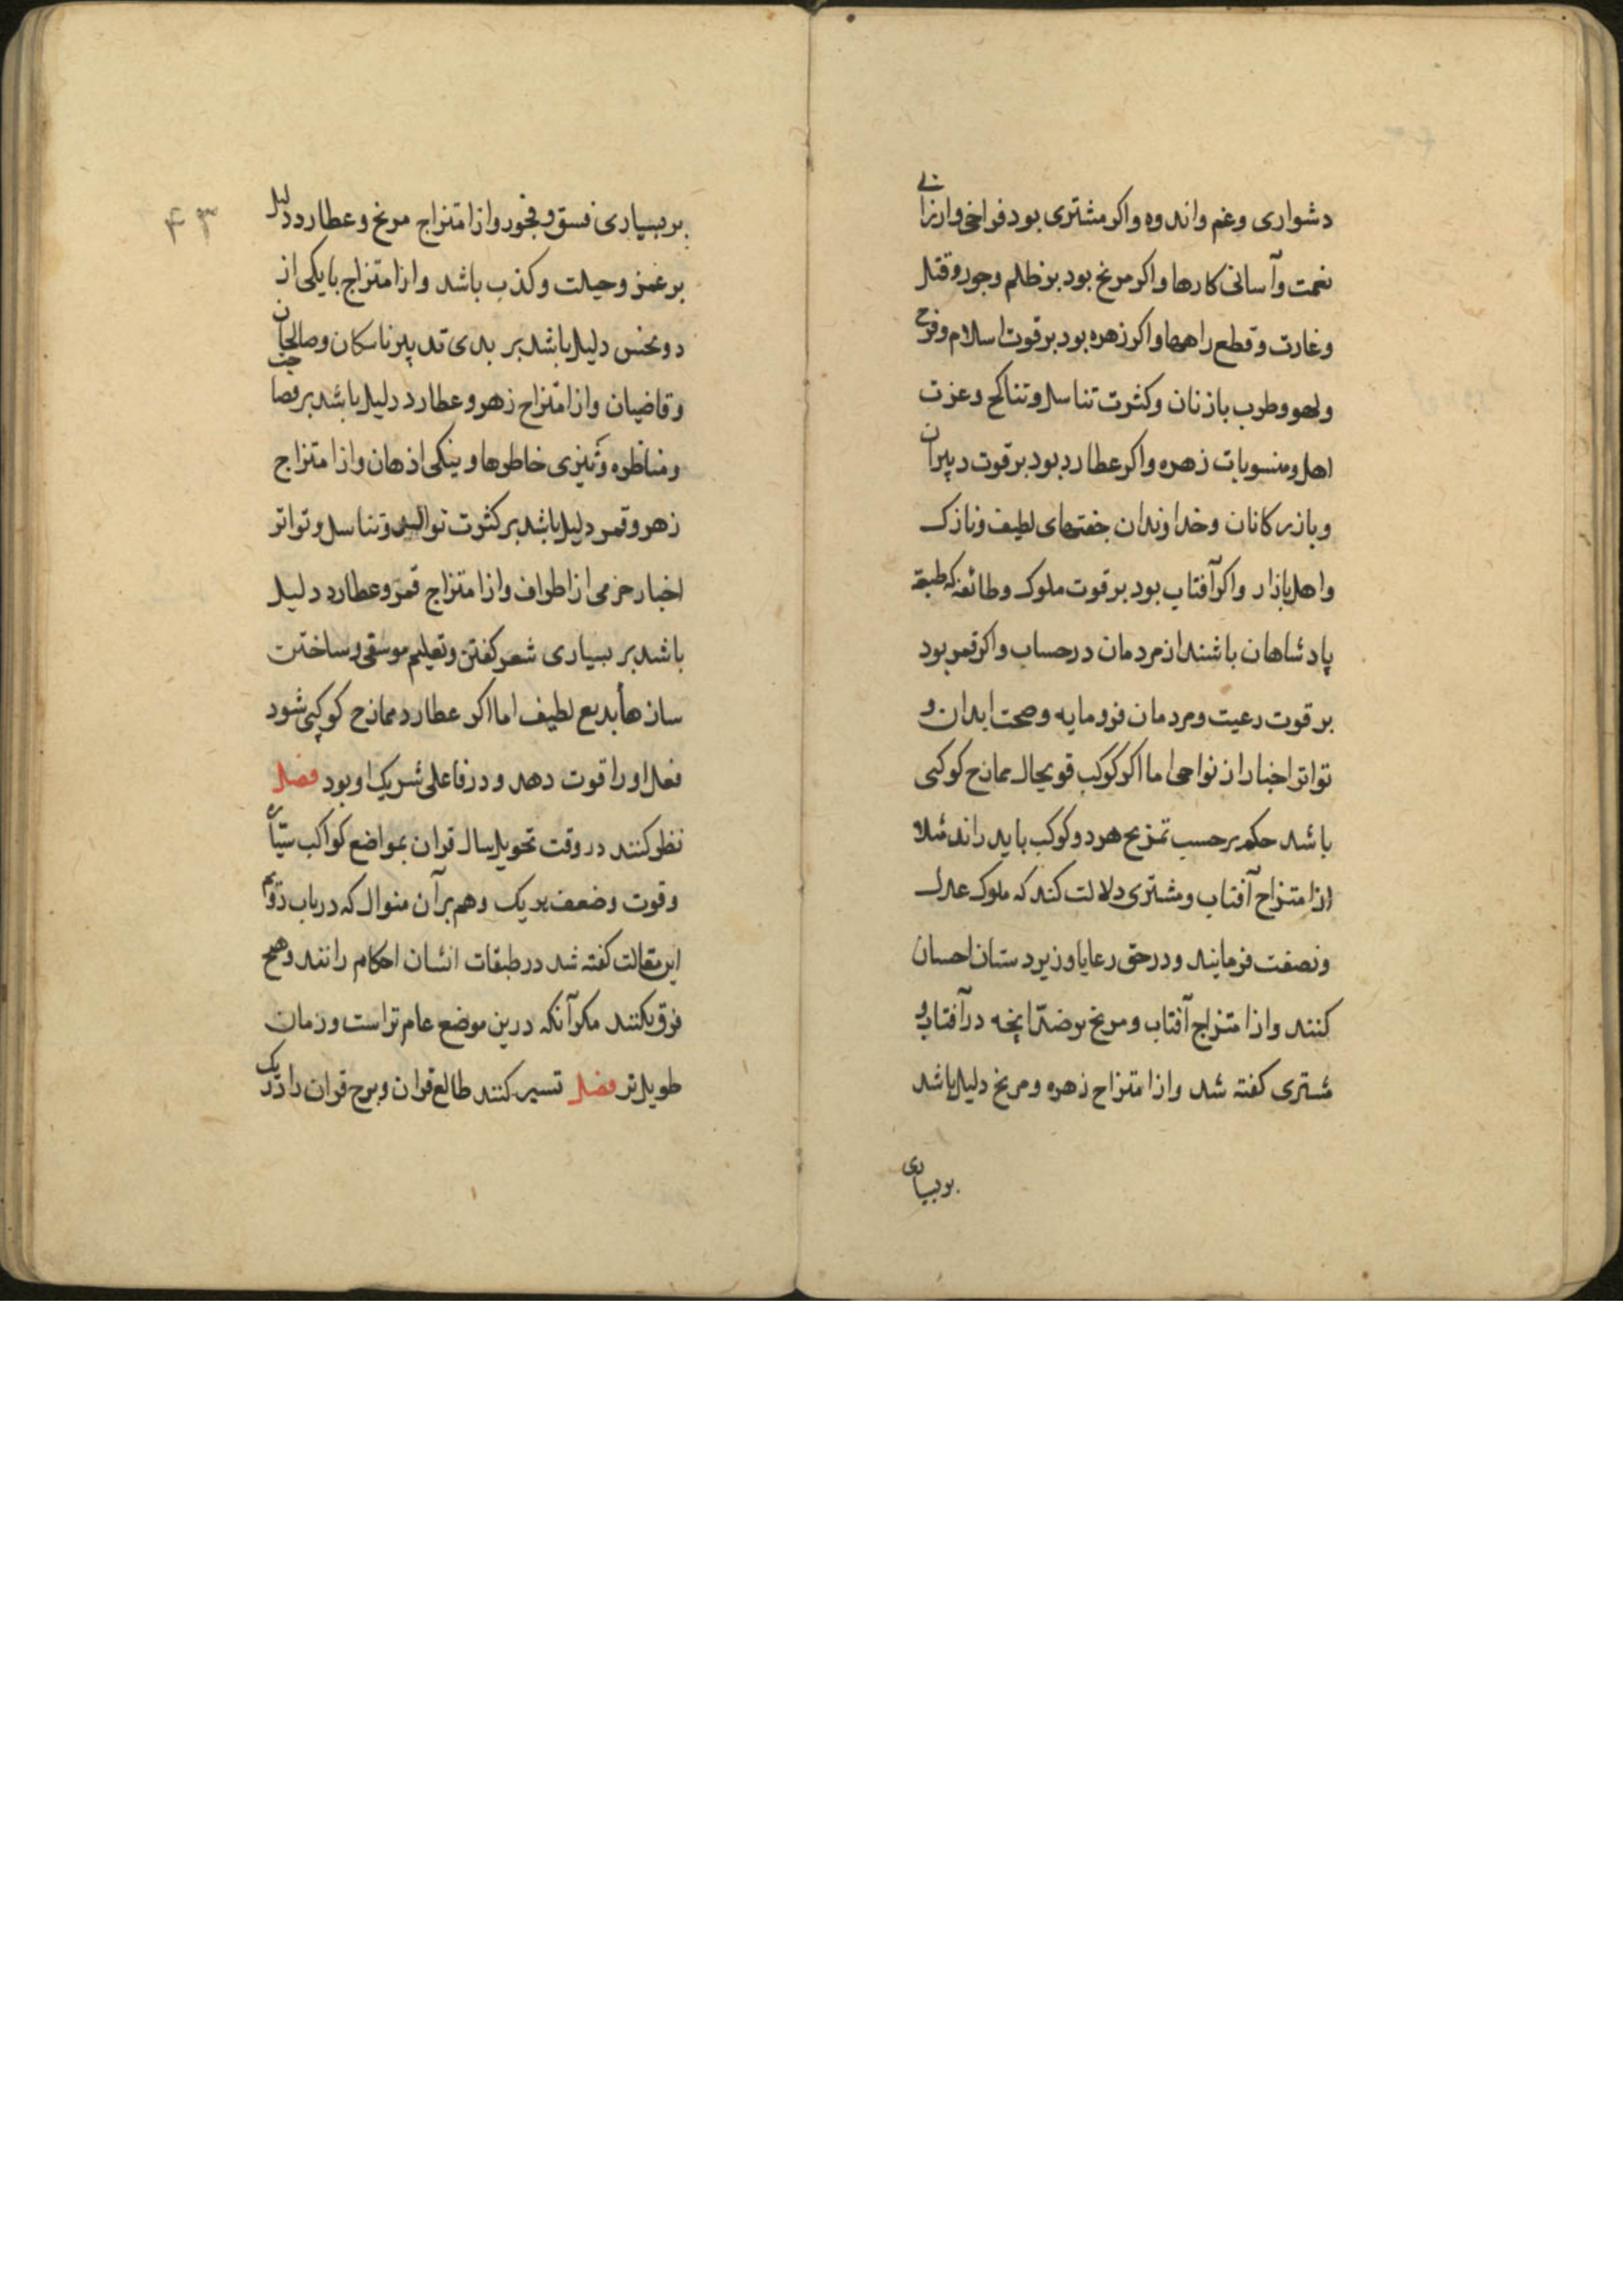 دشواری وغم واندوه واکر مشتری بود فراخی وارزانی
نعمت وآسانی کارها واکر مریخ بود بر ظلم وجور وقتل
وغارت وقطع راهها واکر زهره بود بر قوت اسلام وفرح
ولهو وطرب بازنان وکثرت تناسل وتناکح وعزت
اهل ومنسوبات زهره واکر عطارد بود بر قوت دبیران
وبازرکانان وخداوندان جفتهای لطیف ونازک
واهل بازار واکر آفتاب بود بر قوت ملوک وطائفه که طبقة
پادشاهان باشند از مردمان در حساب واکر قمر بود
بر قوت رعیت ومردمان فرومایه وصحت ابدان و
تواتر اخبار از نواحی اما اکر کوکب قویحال ممازح کوکبی
باشد حکم بر حسب تمزیح هر دو کوکب باید راند مثلا
از امتزاح آفتاب ومشتری دلالت کند که ملوک عدل
ونصفت فرمایند ودر حق رعایا وزیردستان احسان
کنند واز امتزاج آفتاب ومریخ بر ضد آنچه در آفتاب و
مشتری کفته شد واز امتزاح زهره ومریخ دلیل باشد
بر بسیاری
۴۳
بر بسیاری فسق وفجور واز امتزاج مریخ وعطارد دلیل
بر غمز وحیلت وکذب باشد واز امتزاج با یکی از
دو نحس دلیل باشد بر بدی تدبیر ناسکان وصالحان
وقاضیان واز امتزاح زهره وعطارد دلیل باشد بر فصاحت
ومناظره وتیزی خاطرها ونیکی اذهان واز امتزاج
زهره وقمر دلیل باشد بر کثرت توالد وتناسل وتواتر
اخبار خرمی از اطراف واز امتزاج قمر وعطارد دلیل
باشد بر بسیاری شعر کفتن وتعلیم موسقی وساختن
سازها بدیع لطیف اما اکر عطارد ممازح کوکبی شود
فعل او را قوت دهد ودر فاعلی شریک او بود فصل
نظر کنند در وقت تحویل سال قران بمواضع کواکب سیّاره
وقوت وضعف هر یک وهم بر آن منوال که در باب دوّم
این مقالت کفته شد در طبقات انسان احکام رانند وهیچ
فرق نکنند مکر آنکه درین موضع عام تر است وزمان
طویل تر فصل تسییر کنند طالع قران وبرج قران را در یک